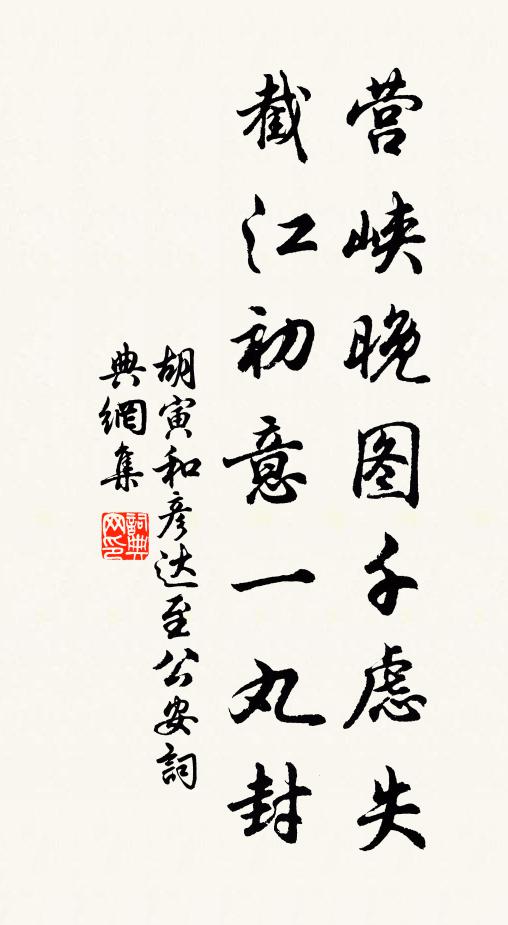 营峡晚图千虑失
截江初意一丸封
胡寅和彦达至公安詞
典網集
詞典
网印